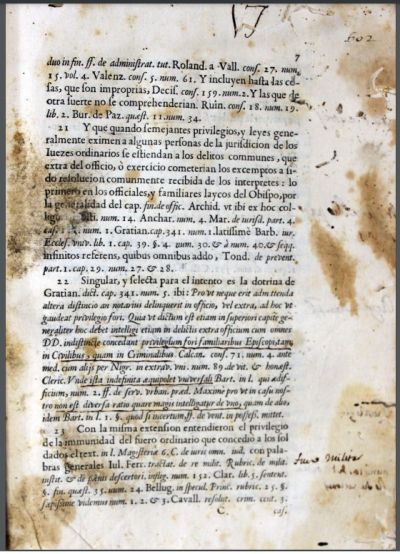 602
7
duo in fin. ff. de administrat. tut. Roland. a Vall. cons. 27. num.
15. vol. 4. Valenz. cons. 5. num. 61. Y incluyen hasta las co-
sas, que son improprias, Decis. cons. 159. num. 2. Y las que de
otra suerte no se comprehenderian. Ruin. cons. 18. num. 19.
lib. 2. Bur. de Paz. quæst. 11. num. 34.
21 Y que quando semejantes privilegios, y leyes gene-
ralmente eximen a algunas personas de la jurisdicion de los
Iuezes ordinarios se estiendan a los delitos communes, que
extra del officio, ò exercicio cometerian los excemptos a si-
do resolucion comunmente recibida de los interpretes: lo
primero en los officiales, y familiares laycos del Obispo, por
la generalidad del cap. fin. de offic. Archid. vt ibi ex hoc col-
ligu num. 14. Anchar. num. 4. Mar. de iurisd. part. 4.
cas. num. 1. Gratian. cap. 341. num. 1. latissimè Barb. iur.
Eccles. vniv. lib. 1. cap. 39. §. 4. num. 30. & à num. 40. & seqq.
infinitos referens, quibus omnibus addo, Tond. de prevent.
part. 1. cap. 29. num. 27. & 28.
22 Singular, y selecta para el intento es la dotrina de
Gratian. dict. cap. 341. num. 5. ibi: Pro vt neque erit admittenda
altera distinctio an notarius delinquerit in officio, vel extra, ad hoc vt
gaudeat privilegio fori. Quia vt dictum est etiam in superiori capite ge-
neraliter hoc debet intelligi etiam in delictis extra officium cum omnes
DD. indistinctè concedant privilegium fori familiaribus Episcopi tam
in Civilibus, quam in Criminalibus. Calcan. cons. 71. num. 4. ante
med. cum alijs per Nigr. in extrav. vn. num. 89. de vit. & honest.
Cleric. Vnde ista indefinita æquipolet vniversali Bart. in l. qui ædi-
ficium, num. 2. ff. de serv. vrban. præd. Maximè pro vt in casu nos-
tro non est diversa ratio quare magis intelligatur de vno, quam de alio,
idem Bart. in l. 1. §. quod si incertum ff. de vent. in possess. mittet.
23 Con la misma extension entendieron el privilegio
de la immunidad del fuero ordinario que concedio a los sol-
dados el text. in l. Magisteriæ 6. C. de iuris om. iud. con pala-
bras generales Iul. Ferr. tractat. de re milit. Rubric. de milit.
instit. & de pœnis descertori. insig. num. 152. Clar. lib. 5. sentent.
§. fin. quæst. 35. num. 24. Bellug. in specul. Princ. rubric. 25. §.
sapissime videmus num. 1. 2. & 3. Cavall. resolut. crim. cent. 3.
fuero militar
C. cas.